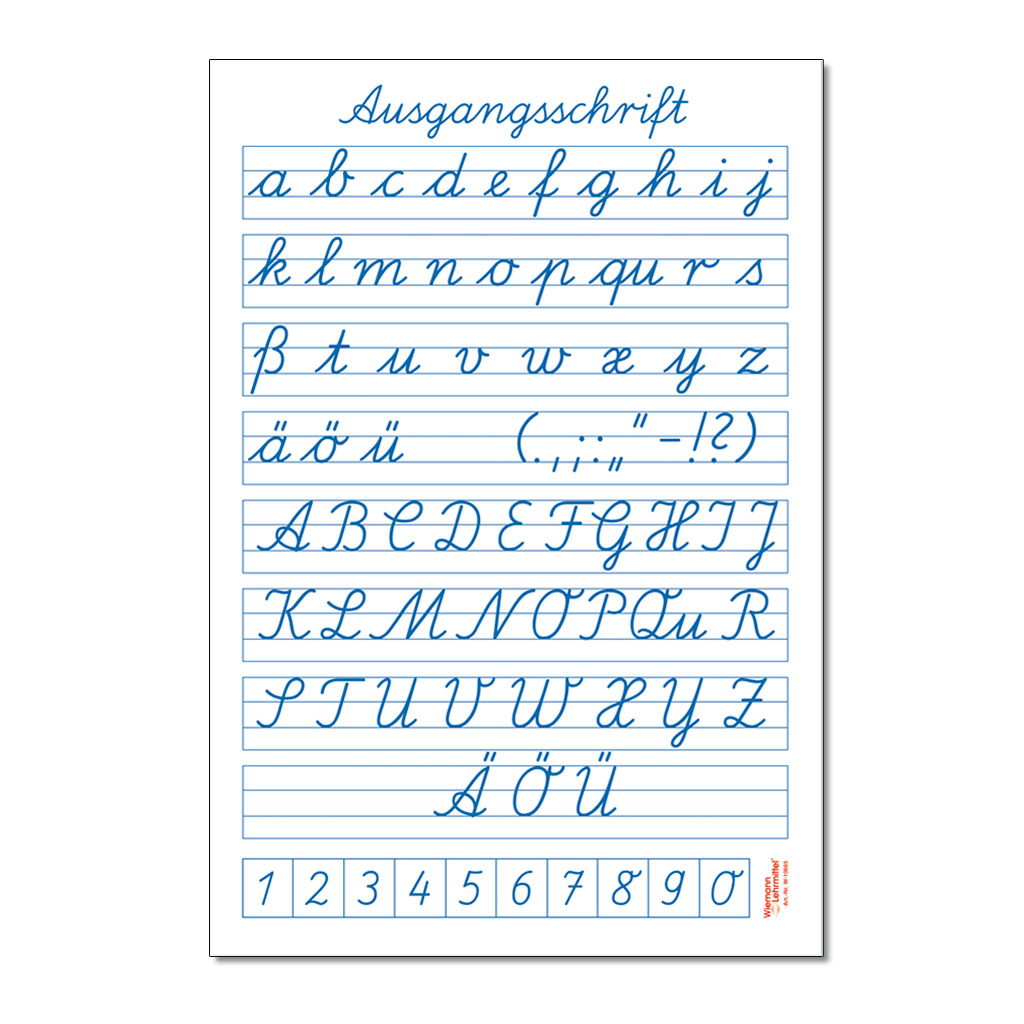 Ausgangsschrift
a b c d e f g h i j
k l m n o p qu r s
ß t u v w x y z
ä ö ü (.,;:„"-!?)
A B C D E F G H I J
K L M N O P Qu R
S T U V W X Y Z
Ä Ö Ü
1 2 3 4 5 6 7 8 9 0
Wiemann
Lehrmittel®
Art.-Nr. W-10665